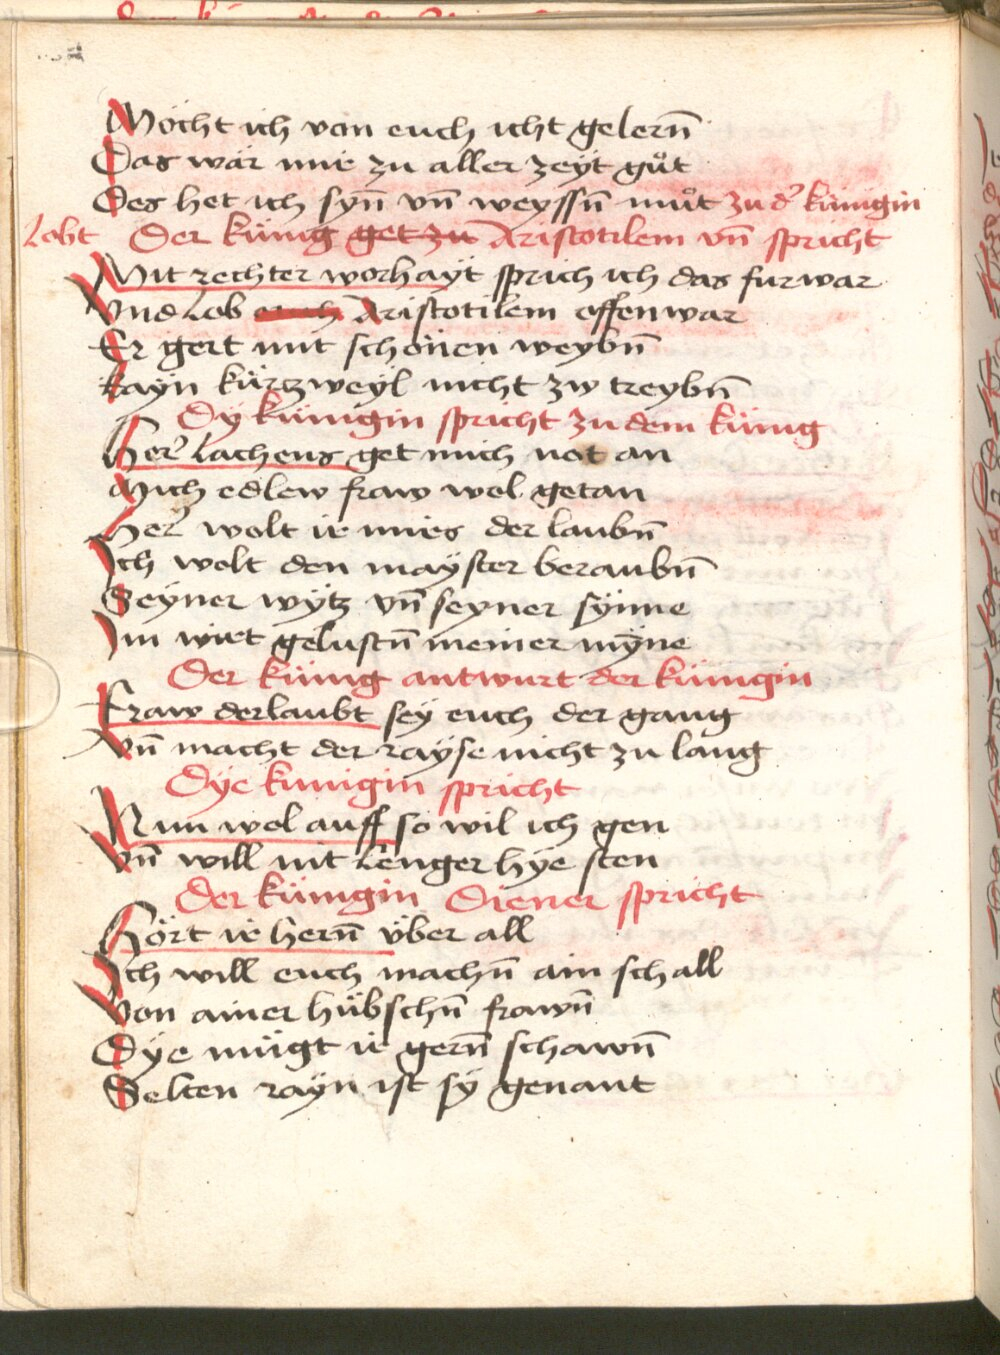 Möcht ich von euch icht gelern̄
Das wär mir zu aller zeÿt gůt
Des het ich sÿn̄ vn̄ weyssn̄ můt zu d' künigin
Lobt Der künig get zu Aristotilem vn̄ spricht
Mit rechter worhaÿt sprich ich das furwar
Vnd Lob euch Aristotilem offenwar
Er gert mit schönen weybn̄
kaÿn kürtzweÿl nicht zw treybn̄
Dÿ künigin spricht zu dem künig
Her' Lachens get mich not an
Mich edlew fraw wol getan
Her' wolt ir mirs der laubn̄
Ich wolt den maÿster beraubn̄
Seÿner wÿtz vn̄ seyner sÿnne
Im wirt gelustn̄ meiner mÿne
Der künig antwurt der künigin
Fraw derlaubt seÿ euch der gang
Vn̄ macht der raÿse nicht zu lang
Dÿe kunigin spricht
Nun wol auff so wil ich gen
Vn̄ will nit lenger hÿe sten
Der künigin Diener spricht
Hört ir hern̄ vber all
Ich will euch machn̄ ain schall
Von ainer hübschn̄ frawn̄
Dÿe mügt ir gern̄ schawn̄
Selten raÿn ist sÿ genant